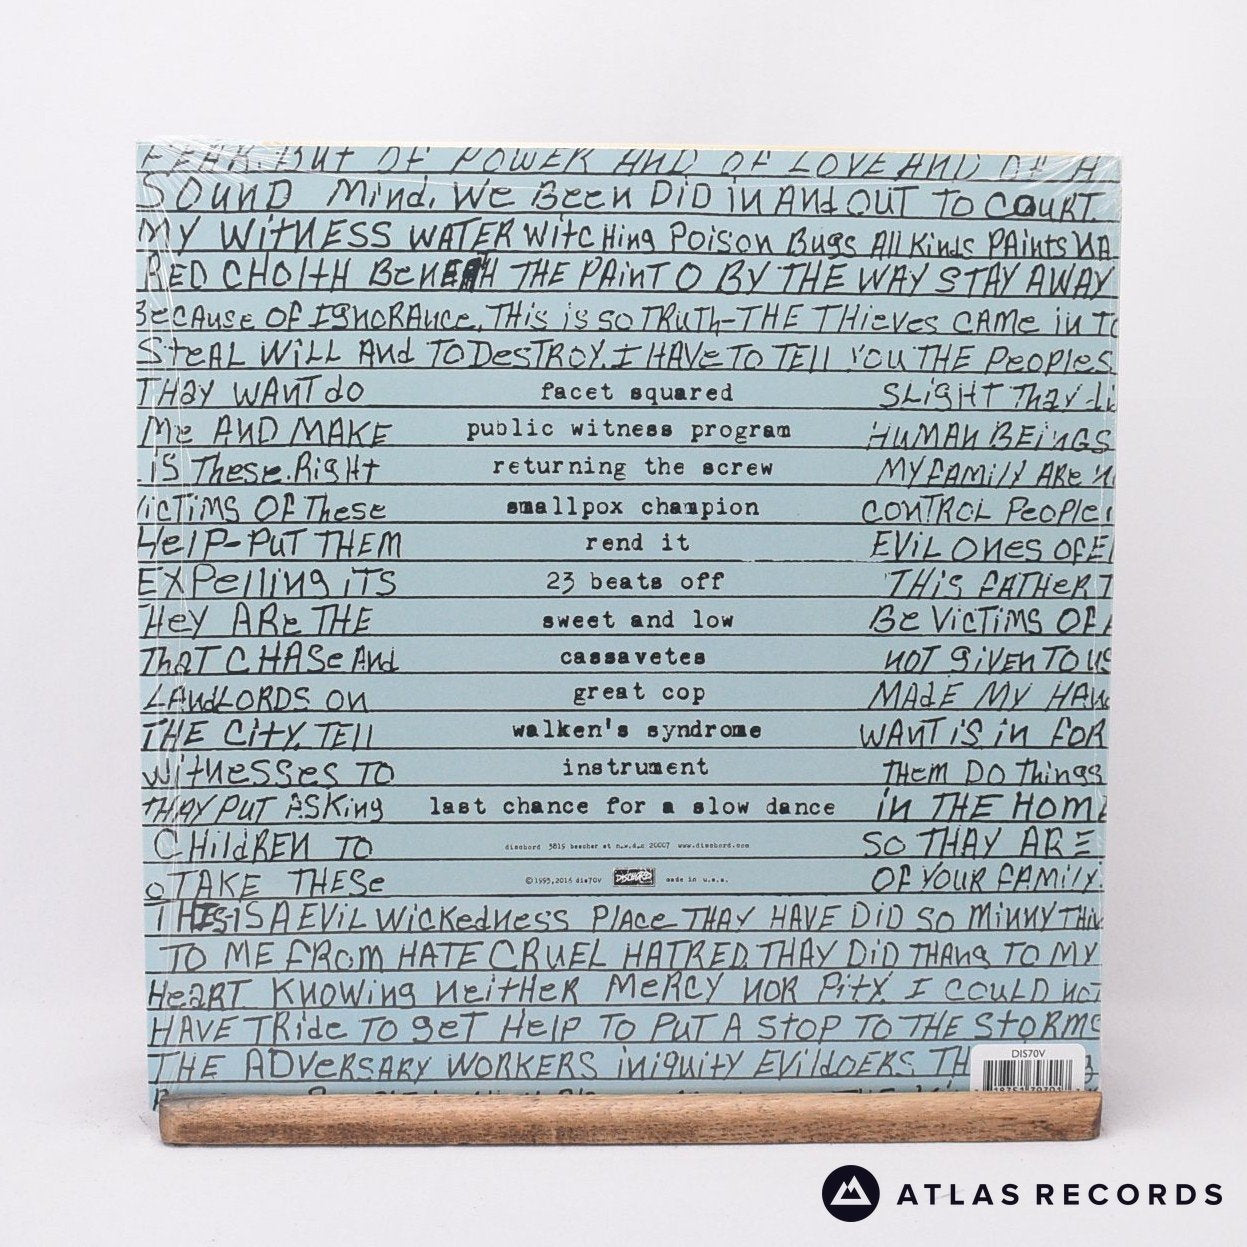 FEAR. But OF POWER AND OF LOVE AND OF A
SOUND Mind. We Been DiD iN ANd OUT TO COURT
MY WiTNESS WATER WiTCHing POiSON BUgS All Kinds PAints
RED CHOItH BeNEATH THE PAiNT O BY THE WAY STAY AWAY
BeCAuse OF IgNORANce. THis is so TRuTh-THE THieves CAMe iN TO
STeAL WiLL ANd TO DesTROY. I HAVe TO TEll YOU THE Peoples
THay WANT do facet squared SLigHT THay
Me AND MAKE public witness program HUMAN BEiNGS
iS These. Right returning the screw MY FAMiLY ARe
VicTiMS OF These smallpox champion CONTROL PeoPle
HelP-PuT THEM rend it EViL ONes OF
EXPelliNg iTS 23 beats off THiS FATHeR
Hey ARe THE sweet and low Be VicTiMS OF
THaT CHASe ANd cassavetes NOT giVEN TO US
LANdLORDS ON great cop MAdE MY HAN
THE CiTY. TEll walken's syndrome WANT iS iN FOR
WiTNesses TO instrument THeM DO THings
THAY PUT ASKing last chance for a slow dance iN THE HOME
CHildREN TO dischord 3819 beecher st n.w.d.c 20007 www.dischord.com SO THAY ARE
TAKE THESe ©1993,2016 dis70V DISCHORD made in u.s.a. OF YOUR FAMiLY.
THIS iS A EViL WiCKedNess PLAce THAY HAVE DiD SO MiNNY THiN
TO ME FROM HATE CRUEL HATRED. THAY DiD THANg TO MY
HeaRT KNOWiNg NeiTHeR MeRCY NOR PiTY. I COULD NOT
HAVE TRide TO geT Help TO PuT A STOP TO THE STORMS
THE ADVeRSARY WORKERS iNiquiTY EVildOERS
DIS70V
ATLAS RECORDS